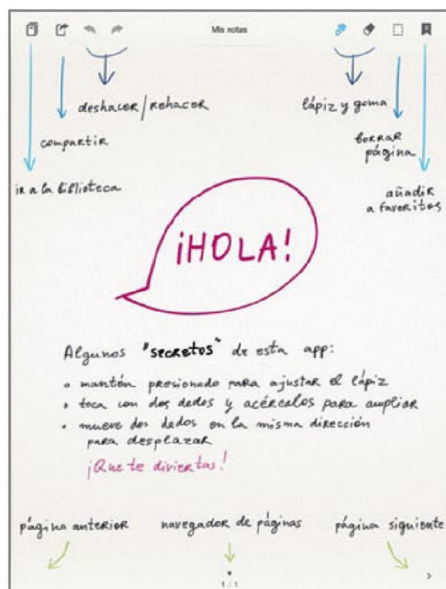 Mis notas
deshacer/rehacer
lápiz y goma
compartir
borrar
página
ir a la biblioteca
añadir
a favoritos
¡HOLA!
Algunos "secretos" de esta app:
• mantén presionado para ajustar el lápiz
• toca con dos dedos y acércalos para ampliar
• mueve dos dedos en la misma dirección
para desplazar
¡Que te diviertas!
página anterior
navegador de páginas
página siguiente
1 / 1